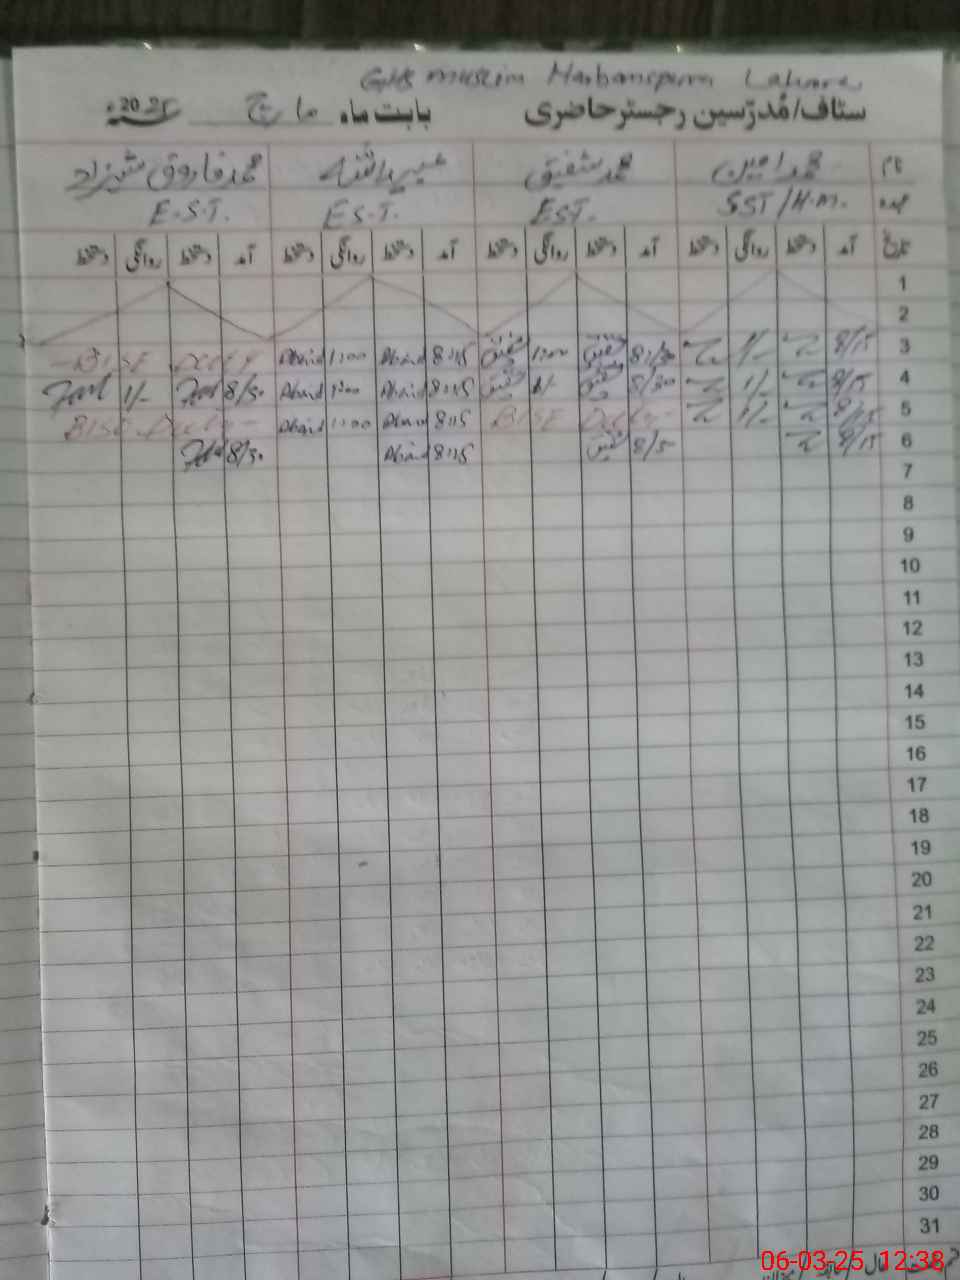 GHS Muslim Harbanspura Lahore
سٹاف/مُدرّسین رجسٹر حاضری بابت ماہ مارچ 2025ء
نام محمد امین محمد شفیق عبید اللہ محمد فاروق شہزاد
عہدہ SST/H.M. EST. E.S.T. E.S.T.
تاریخ آمد دستخط روانگی دستخط آمد دستخط روانگی دستخط آمد دستخط روانگی دستخط آمد دستخط روانگی دستخط
1
2
3 8/15 1/- 8:/30 شفیق 1:00 شفیق 8:15 Abaid 1:00 Abaid BISE Duty
4 8/15 1/- 8/30 شفیق 1/- شفیق 8:15 Abaid 1:00 Abaid 8/30 1/-
5 8/15 1/- BISE Duty- 8:15 Abaid 1:00 Abaid BISE Duty-
6 8/15 شفیق 8:15 Abaid 8/30
7
8
9
10
11
12
13
14
15
16
17
18
19
20
21
22
23
24
25
26
27
28
29
30
31
06-03-25 12:38